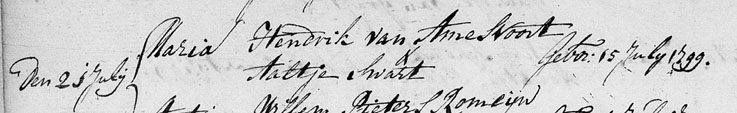 Den 21 July Maria Hendrik van Amesvoort
& Aaltje Swart Gebor: 15 July 1799.
Willem Pieters Romeijn